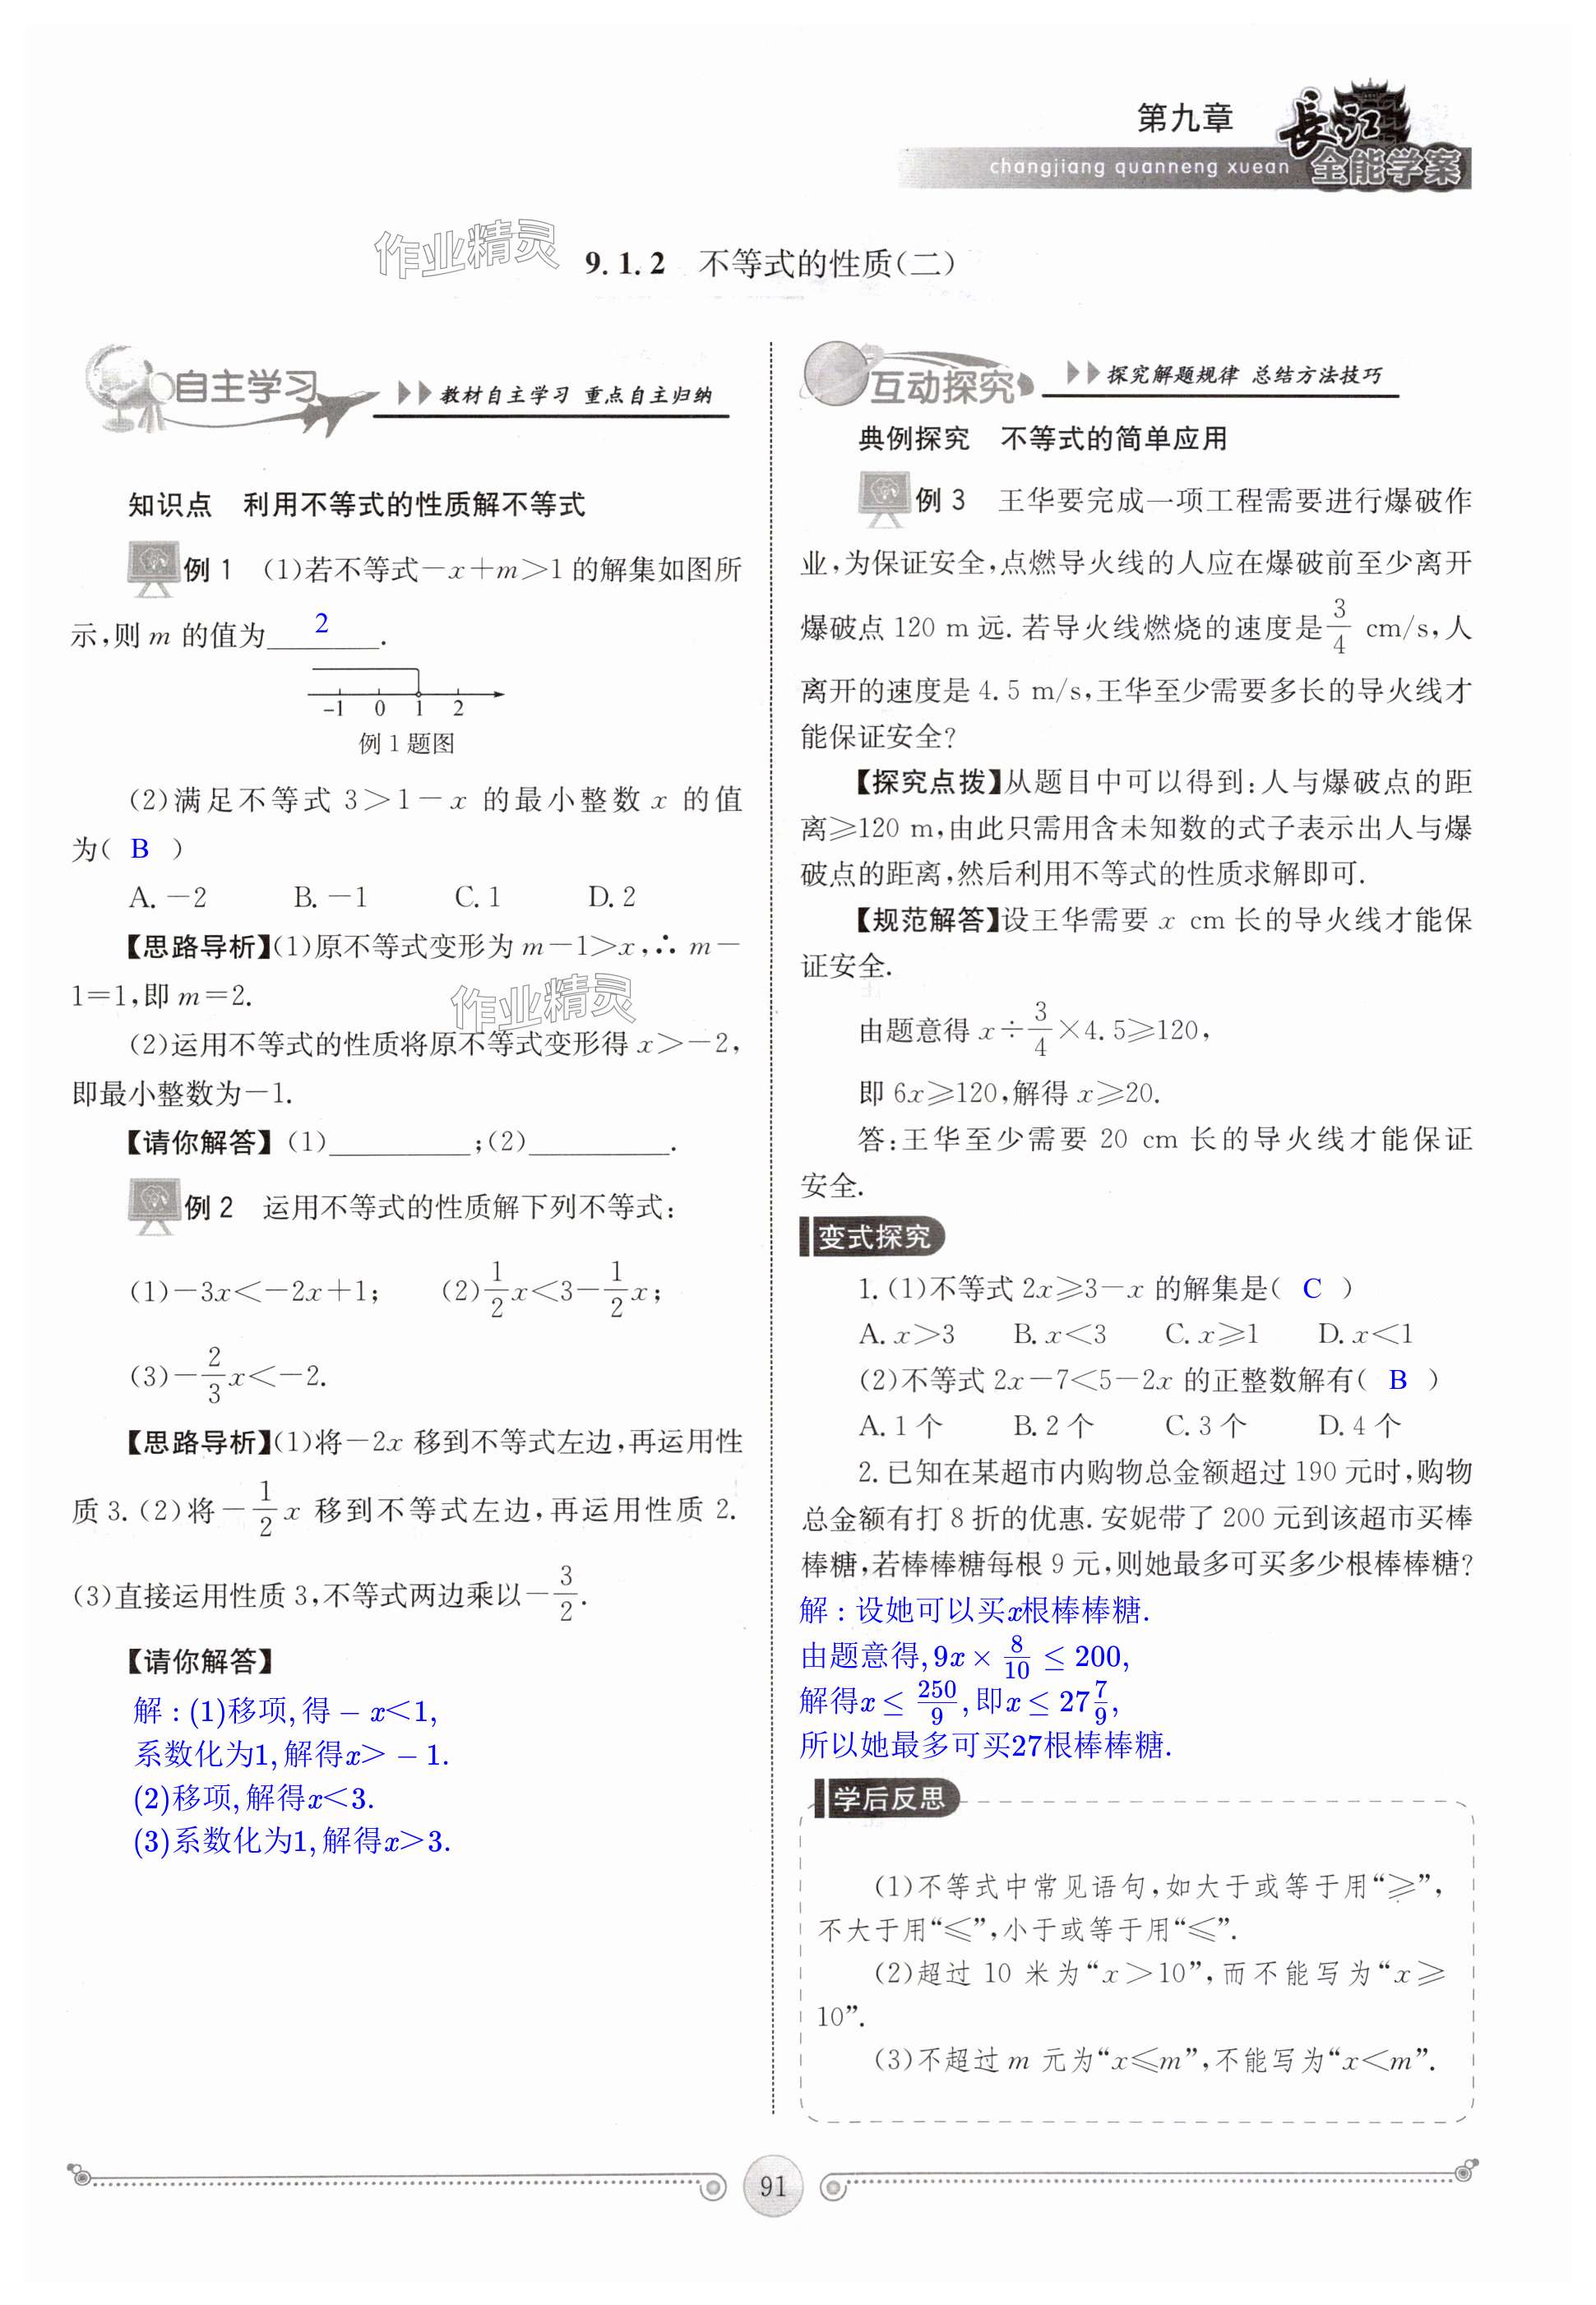 第九章
長江
changjiang quanneng xuean 全能学案
作业精灵
9.1.2 不等式的性质(二)
自主学习 教材自主学习 重点自主归纳
知识点 利用不等式的性质解不等式
例 1 (1)若不等式-x+m>1 的解集如图所
示,则 m 的值为 2 .
-1 0 1 2
例 1 题图
(2)满足不等式 3>1-x 的最小整数 x 的值
为( B )
A. -2 B. -1 C. 1 D. 2
【思路导析】(1)原不等式变形为 m-1>x,∴ m-
1=1,即 m=2.
作业精灵
(2)运用不等式的性质将原不等式变形得 x>-2,
即最小整数为-1.
【请你解答】(1)__________;(2)__________.
例 2 运用不等式的性质解下列不等式:
(1)-3x<-2x+1; (2)1/2x<3-1/2x;
(3)-2/3x<-2.
【思路导析】(1)将-2x 移到不等式左边,再运用性
质 3. (2)将-1/2x 移到不等式左边,再运用性质 2.
(3)直接运用性质 3,不等式两边乘以-3/2.
【请你解答】
解:(1)移项,得-x<1,
系数化为1,解得x>-1.
(2)移项,解得x<3.
(3)系数化为1,解得x>3.
互动探究 探究解题规律 总结方法技巧
典例探究 不等式的简单应用
例 3 王华要完成一项工程需要进行爆破作
业,为保证安全,点燃导火线的人应在爆破前至少离开
爆破点 120 m 远. 若导火线燃烧的速度是3/4 cm/s,人
离开的速度是 4.5 m/s,王华至少需要多长的导火线才
能保证安全?
【探究点拨】从题目中可以得到:人与爆破点的距
离≥120 m,由此只需用含未知数的式子表示出人与爆
破点的距离,然后利用不等式的性质求解即可.
【规范解答】设王华需要 x cm 长的导火线才能保
证安全.
由题意得 x÷3/4×4.5≥120,
即 6x≥120,解得 x≥20.
答:王华至少需要 20 cm 长的导火线才能保证
安全.
变式探究
1. (1)不等式 2x≥3-x 的解集是( C )
A. x>3 B. x<3 C. x≥1 D. x<1
(2)不等式 2x-7<5-2x 的正整数解有( B )
A. 1 个 B. 2 个 C. 3 个 D. 4 个
2. 已知在某超市内购物总金额超过 190 元时,购物
总金额有打 8 折的优惠. 安妮带了 200 元到该超市买棒
棒糖,若棒棒糖每根 9 元,则她最多可买多少根棒棒糖?
解:设她可以买x根棒棒糖.
由题意得,9x×8/10≤200,
解得x≤250/9,即x≤27 7/9,
所以她最多可买27根棒棒糖.
学后反思
(1)不等式中常见语句,如大于或等于用“≥”,
不大于用“≤”,小于或等于用“≤”.
(2)超过 10 米为“x>10”,而不能写为“x≥
10”.
(3)不超过 m 元为“x≤m”,不能写为“x<m”.
91